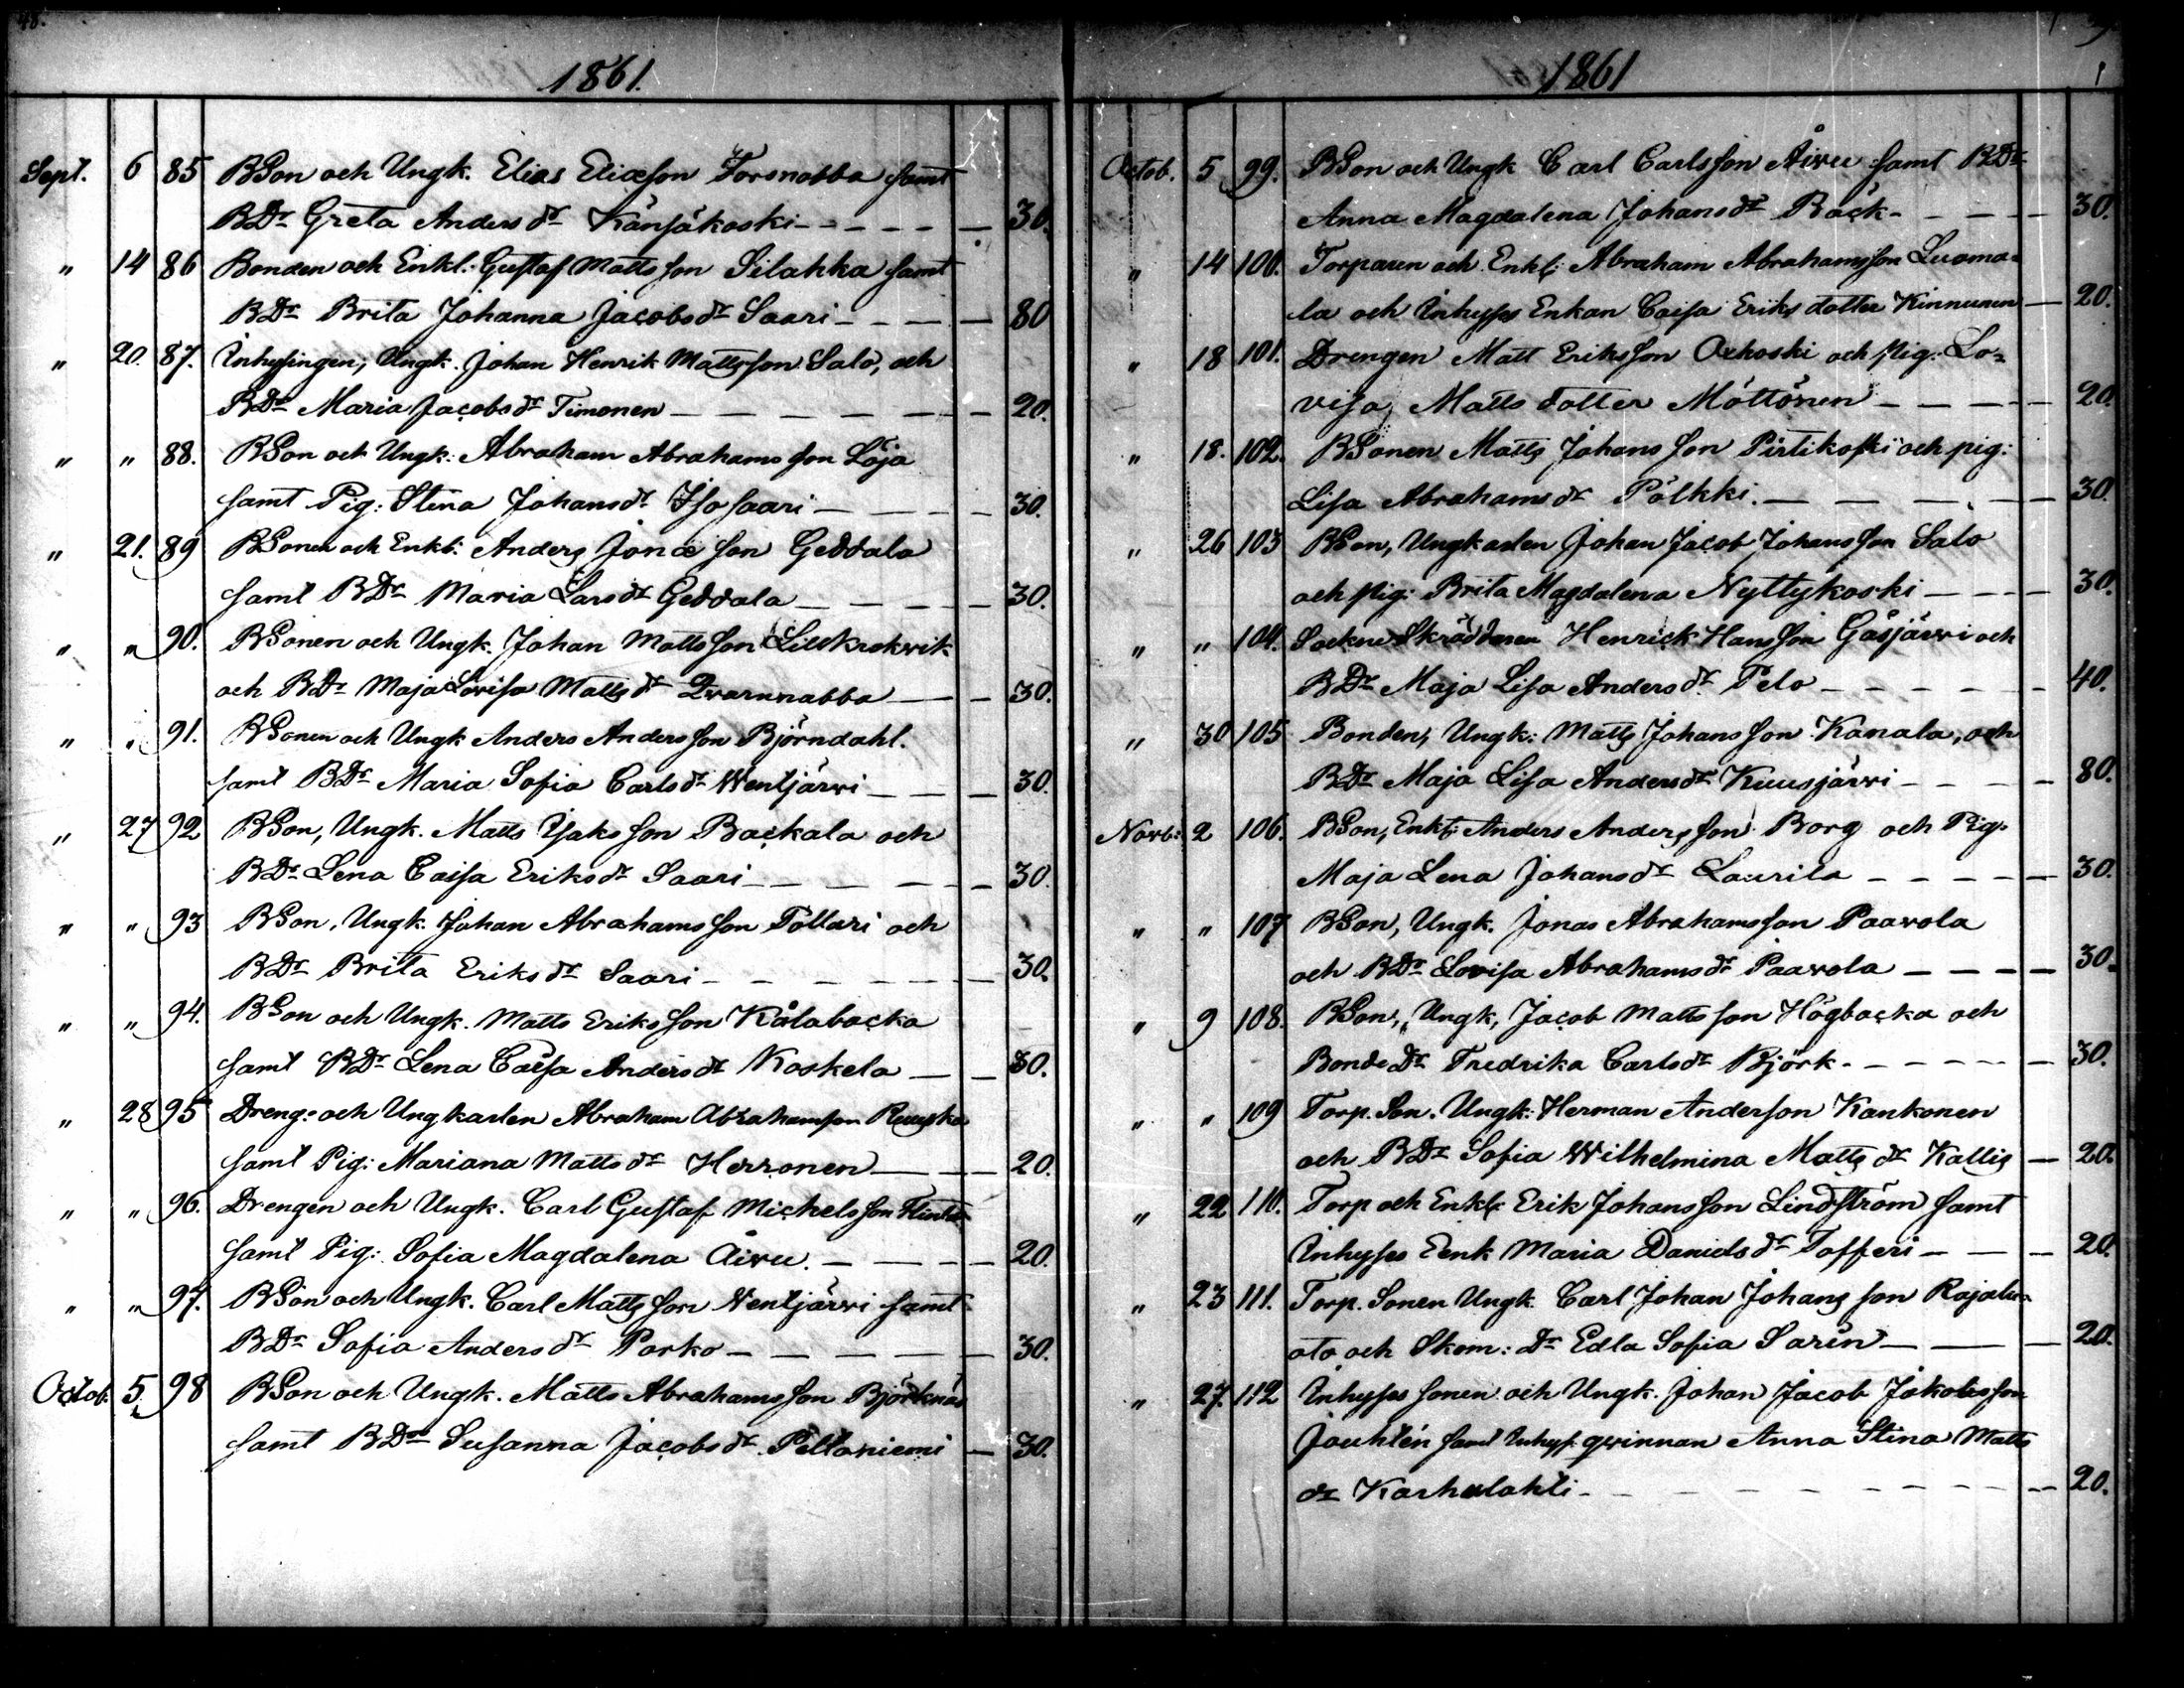 48.
1861.
Sept. 6 85 BSon och Ungk. Elias Eliæson Forsnabba samt
BDr Greta Anders dr Känsäkoski - - - - - 30.
" 14 86 Bonden och Enkl: Gustaf Mattsson Silahka samt
BDr Brita Johanna Jacobs dr Saari - - - - 80
" 20. 87. Inhysingen, Ungk. Johan Henrik Mattsson Salo, och
BDr Maria Jacobs dr Timonen - - - - - - - 20.
" " 88. BSon och Ungk: Abraham Abrahamsson Löja
samt Pig: Stina Johans dr Isosaari - - - - 30.
" 21. 89 BSonen och Enkl: Anders Jonæson Geddala
samt BDr Maria Lars dr Geddala - - - - - 30.
" " 90. BSonen och Ungk. Johan Mattsson Lillkrokvik
och BDr Maja Lovisa Matts dr Qvarnnabba - - 30.
" " 91. BSonen och Ungk Anders Andersson Björndahl.
samt BDr Maria Sofia Carls dr Wentjärwi - - - 30.
" 27 92 BSon, Ungk. Matts Isaksson Backala och
BDr Lena Caisa Eriks dr Saari - - - - - - 30.
" " 93 BSon, Ungk. Johan Abrahamsson Töllari och
BDr Brita Eriks dr Saari - - - - - - - 30.
" " 94. BSon och Ungk. Matts Eriksson Kålabacka
samt BDr Lena Caisa Anders dr Koskela - - 30.
" 28 95 Dreng: och Ungkarlen Abraham Abrahamson Ruuska
samt Pig: Mariana Matts dr Herronen - - - 20.
" " 96. Drengen och Ungk. Carl Gustaf Michelsson
samt Pig: Sofia Magdalena Åivu. - - - - 20.
" " 97. BSon och Ungk. Carl Mattsson Wentjärwi samt
BDr Sofia Anders dr Porko - - - - - - 30.
Octob. 5. 98 BSon och Ungk. Matts Abrahamsson Björknäs
samt BDr Susanna Jacobs dr Peltoniemi - 30.
1861
Octob. 5 99. BSon och Ungk Carl Carlsson Åivu samt BDr
Anna Magdalena Johans dr Back - - - - - 30.
" 14 100. Torparen och Enkl: Abraham Abrahamsson Luoma-
la och Inhyses Enkan Caisa Eriks dotter Kinnunen - 20.
" 18 101. Drengen Matt Eriksson Oxkoski och pig: Lo-
visa Matts dotter Möttönen - - - - - 20
" 18. 102. BSonen Matts Johansson Pirtikoski och pig:
Lisa Abrahams dr Pölkki. - - - - - 30.
" 26 103 BSon, Ungkarlen Johan Jacob Johansson Salo
och pig: Brita Magdalena Nyttykoski - - - - 30.
" " 104. Sockne Skräddaren Henrick Hansson Gåsjärwi och
BDr Maja Lisa Anders dr. Pelo - - - - - 40.
" 30 105 Bonden, Ungk: Matts Johansson Kanala, och
BDr Maja Lisa Anders dr Kuusjärwi - - - - 80.
Novb: 2 106. BSon, Enkl: Anders Andersson Borg och Pig.
Maja Lena Johans dr Laurila - - - - - 30.
" " 107 BSon, Ungk. Jonas Abrahamsson Paavola
och BDr Lovisa Abrahams dr Paavola - - - - 30.
" 9 108. BSon, Ungk, Jacob Mattsson Högbacka och
Bonde Dr Fredrika Carls dr Björk - - - - - - 30.
" " 109 Torp. Son. Ungk: Herman Anderson Kankonen
och BDr Sofia Wilhelmina Matts dr Kallis - 20.
" 22 110. Torp och Enkl: Erik Johansson Lindström samt
Inhyses Eenk Maria Daniels dr Tofferi - - - 20.
" 23 111. Torp. Sonen Ungk. Carl Johan Johansson Rajalu-
oto och Skom: Dr Edla Sofia Sarin - - - 20.
" 27. 112 Inhyses sonen och Ungk. Johan Jacob Jakobsson
Jauhtén samt Inhys qvinnan Anna Stina Matts
dr Karhulahti - - - - - - - - - 20.